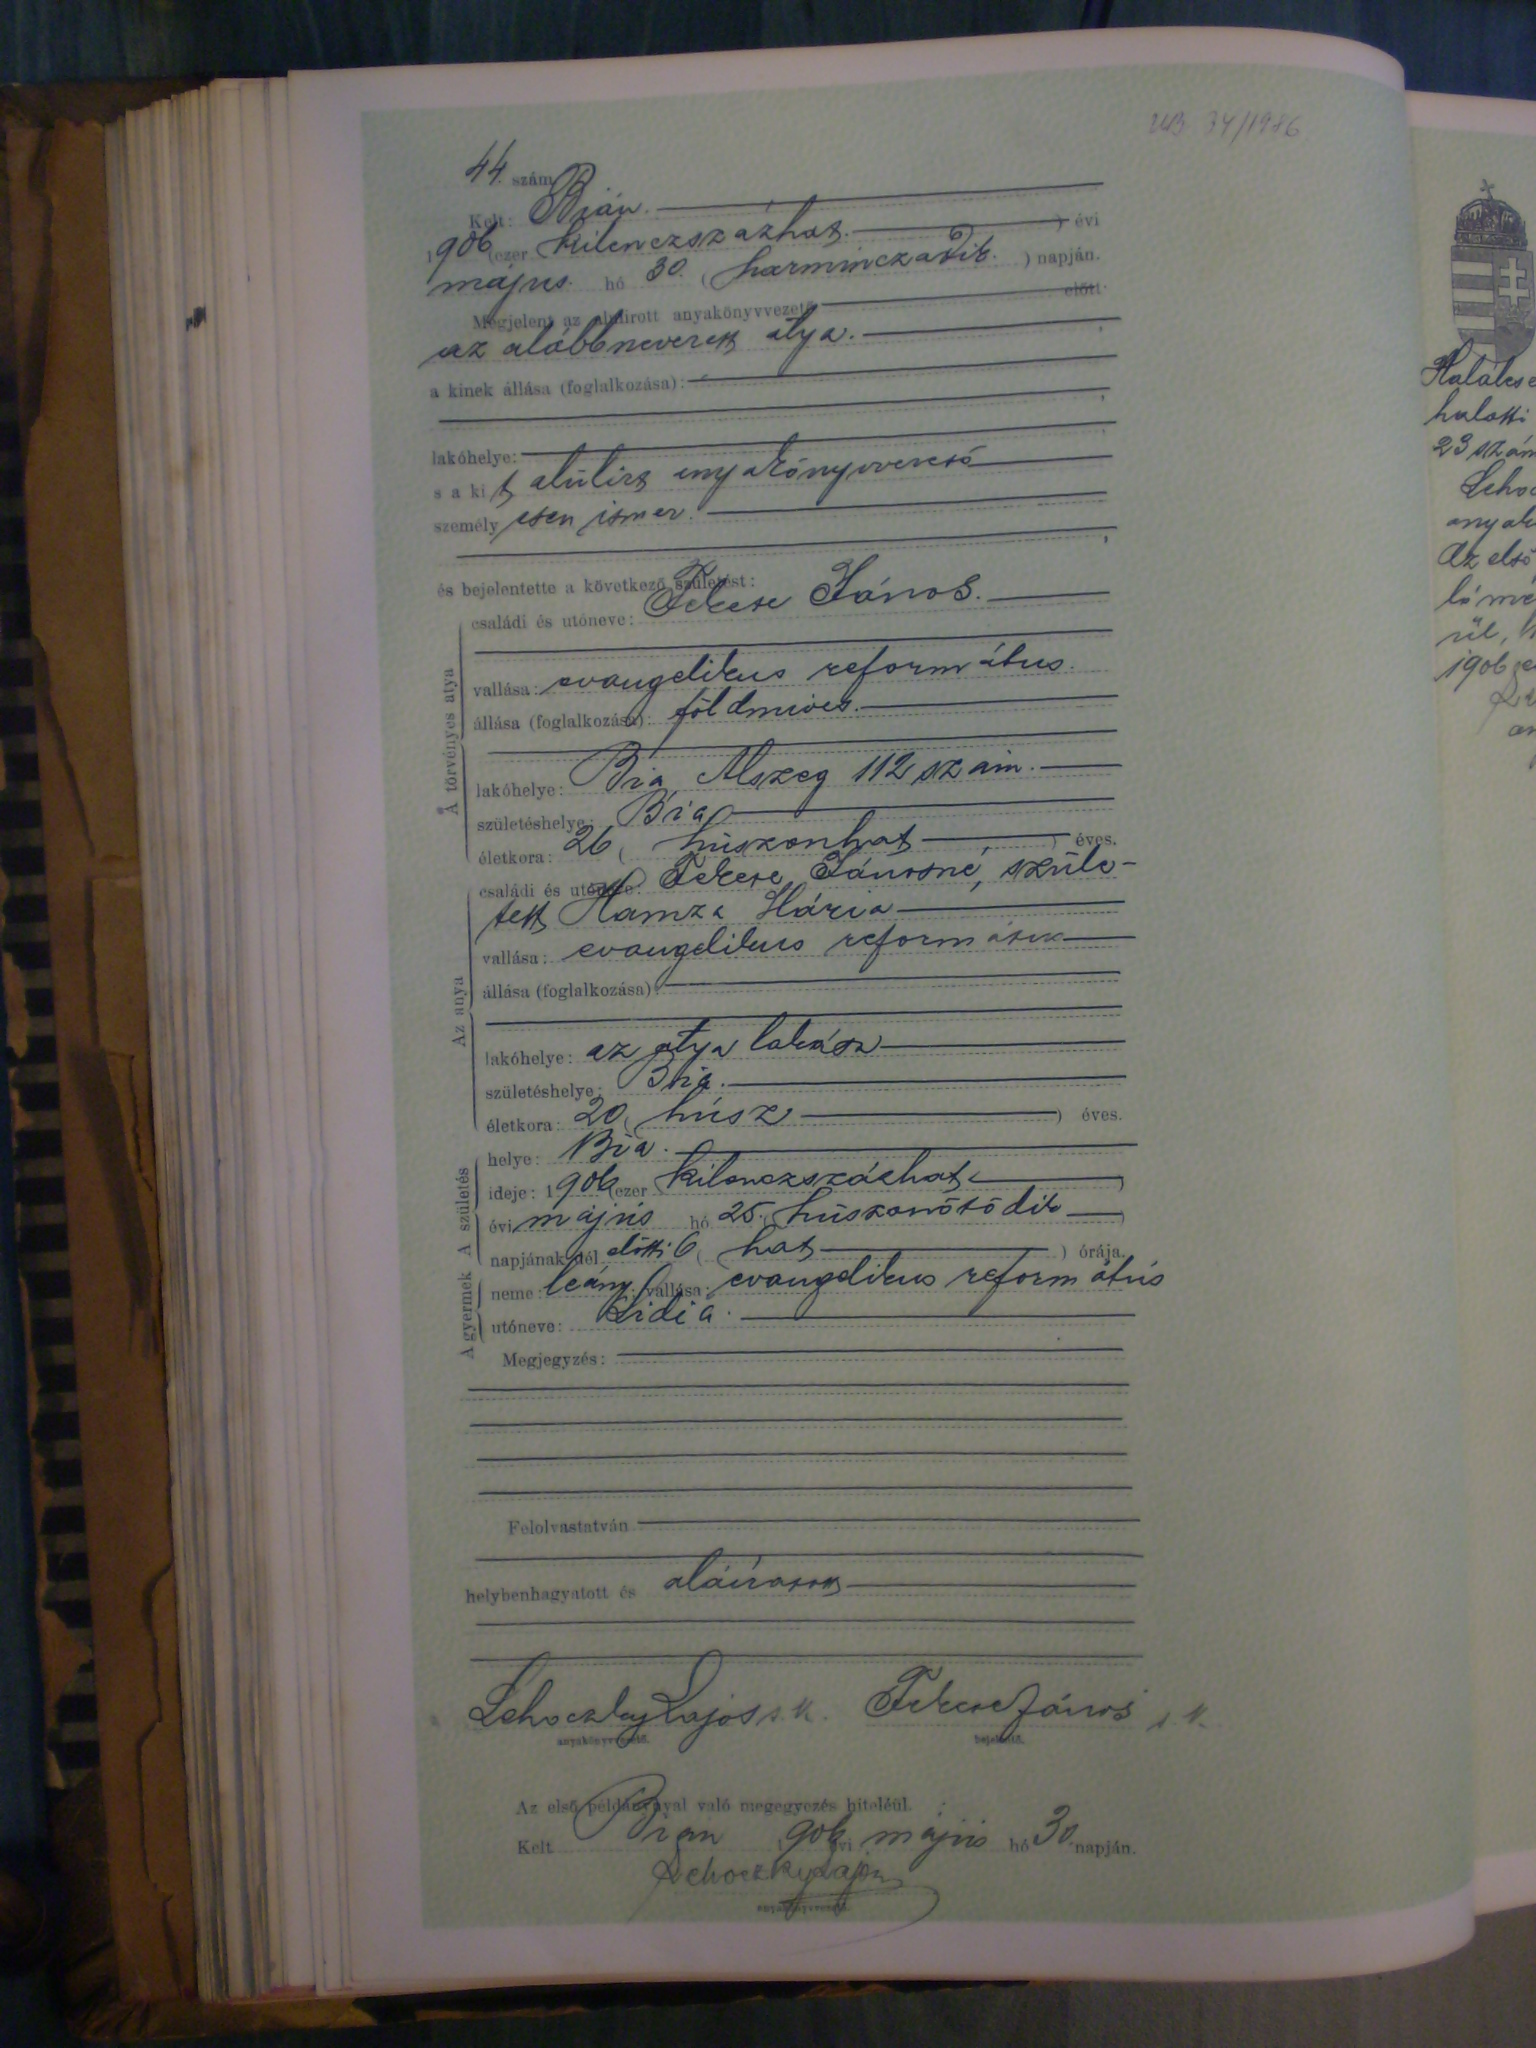 34/1986
44. szám
Kelt: Bián.
1906 (ezer kilenczszázhat ) évi
május hó 30. ( harminczadik. ) napján.
Megjelent az alulírott anyakönyvvezető előtt
az alábbnevezett atya.
a kinek állása (foglalkozása):
lakóhelye:
s a kit alúlirt anyakönyvvezető
személyesen ismer.
és bejelentette a következő születést:
A törvényes atya
családi és utóneve: Fekete János.
vallása: evangelikus református.
állása (foglalkozása): földmives.
lakóhelye: Bia Alszeg 112 szám.
születéshelye: Bia
életkora: 26 ( húszonhat ) éves.
Az anya
családi és utóneve: Fekete Jánosné, szüle-
tett Hamza Mária
vallása: evangelikus református
állása (foglalkozása):
lakóhelye: az atya lakása
születéshelye: Bia.
életkora: 20 ( húsz ) éves.
A születés
helye: Bia.
ideje: 1906 (ezer kilenczszázhat )
évi május hó 25. ( húszonötödik )
napjának dél előtti 6 ( hat ) órája.
A gyermek
neme: leány vallása: evangelikus református
utóneve: Lidia.
Megjegyzés:
Felolvastatván
helybenhagyatott és aláíratott
Lehoczky Lajos s. k. Fekete János s. k.
anyakönyvvezető. bejelentő.
Az első példánynyal való megegyezés hiteléül.
Kelt Bián 1906 évi május hó 30. napján.
Lehoczky Lajos
anyakönyvvezető.
Halálese
halotti
23 szám
Lehoc
anyak
Az első
1906